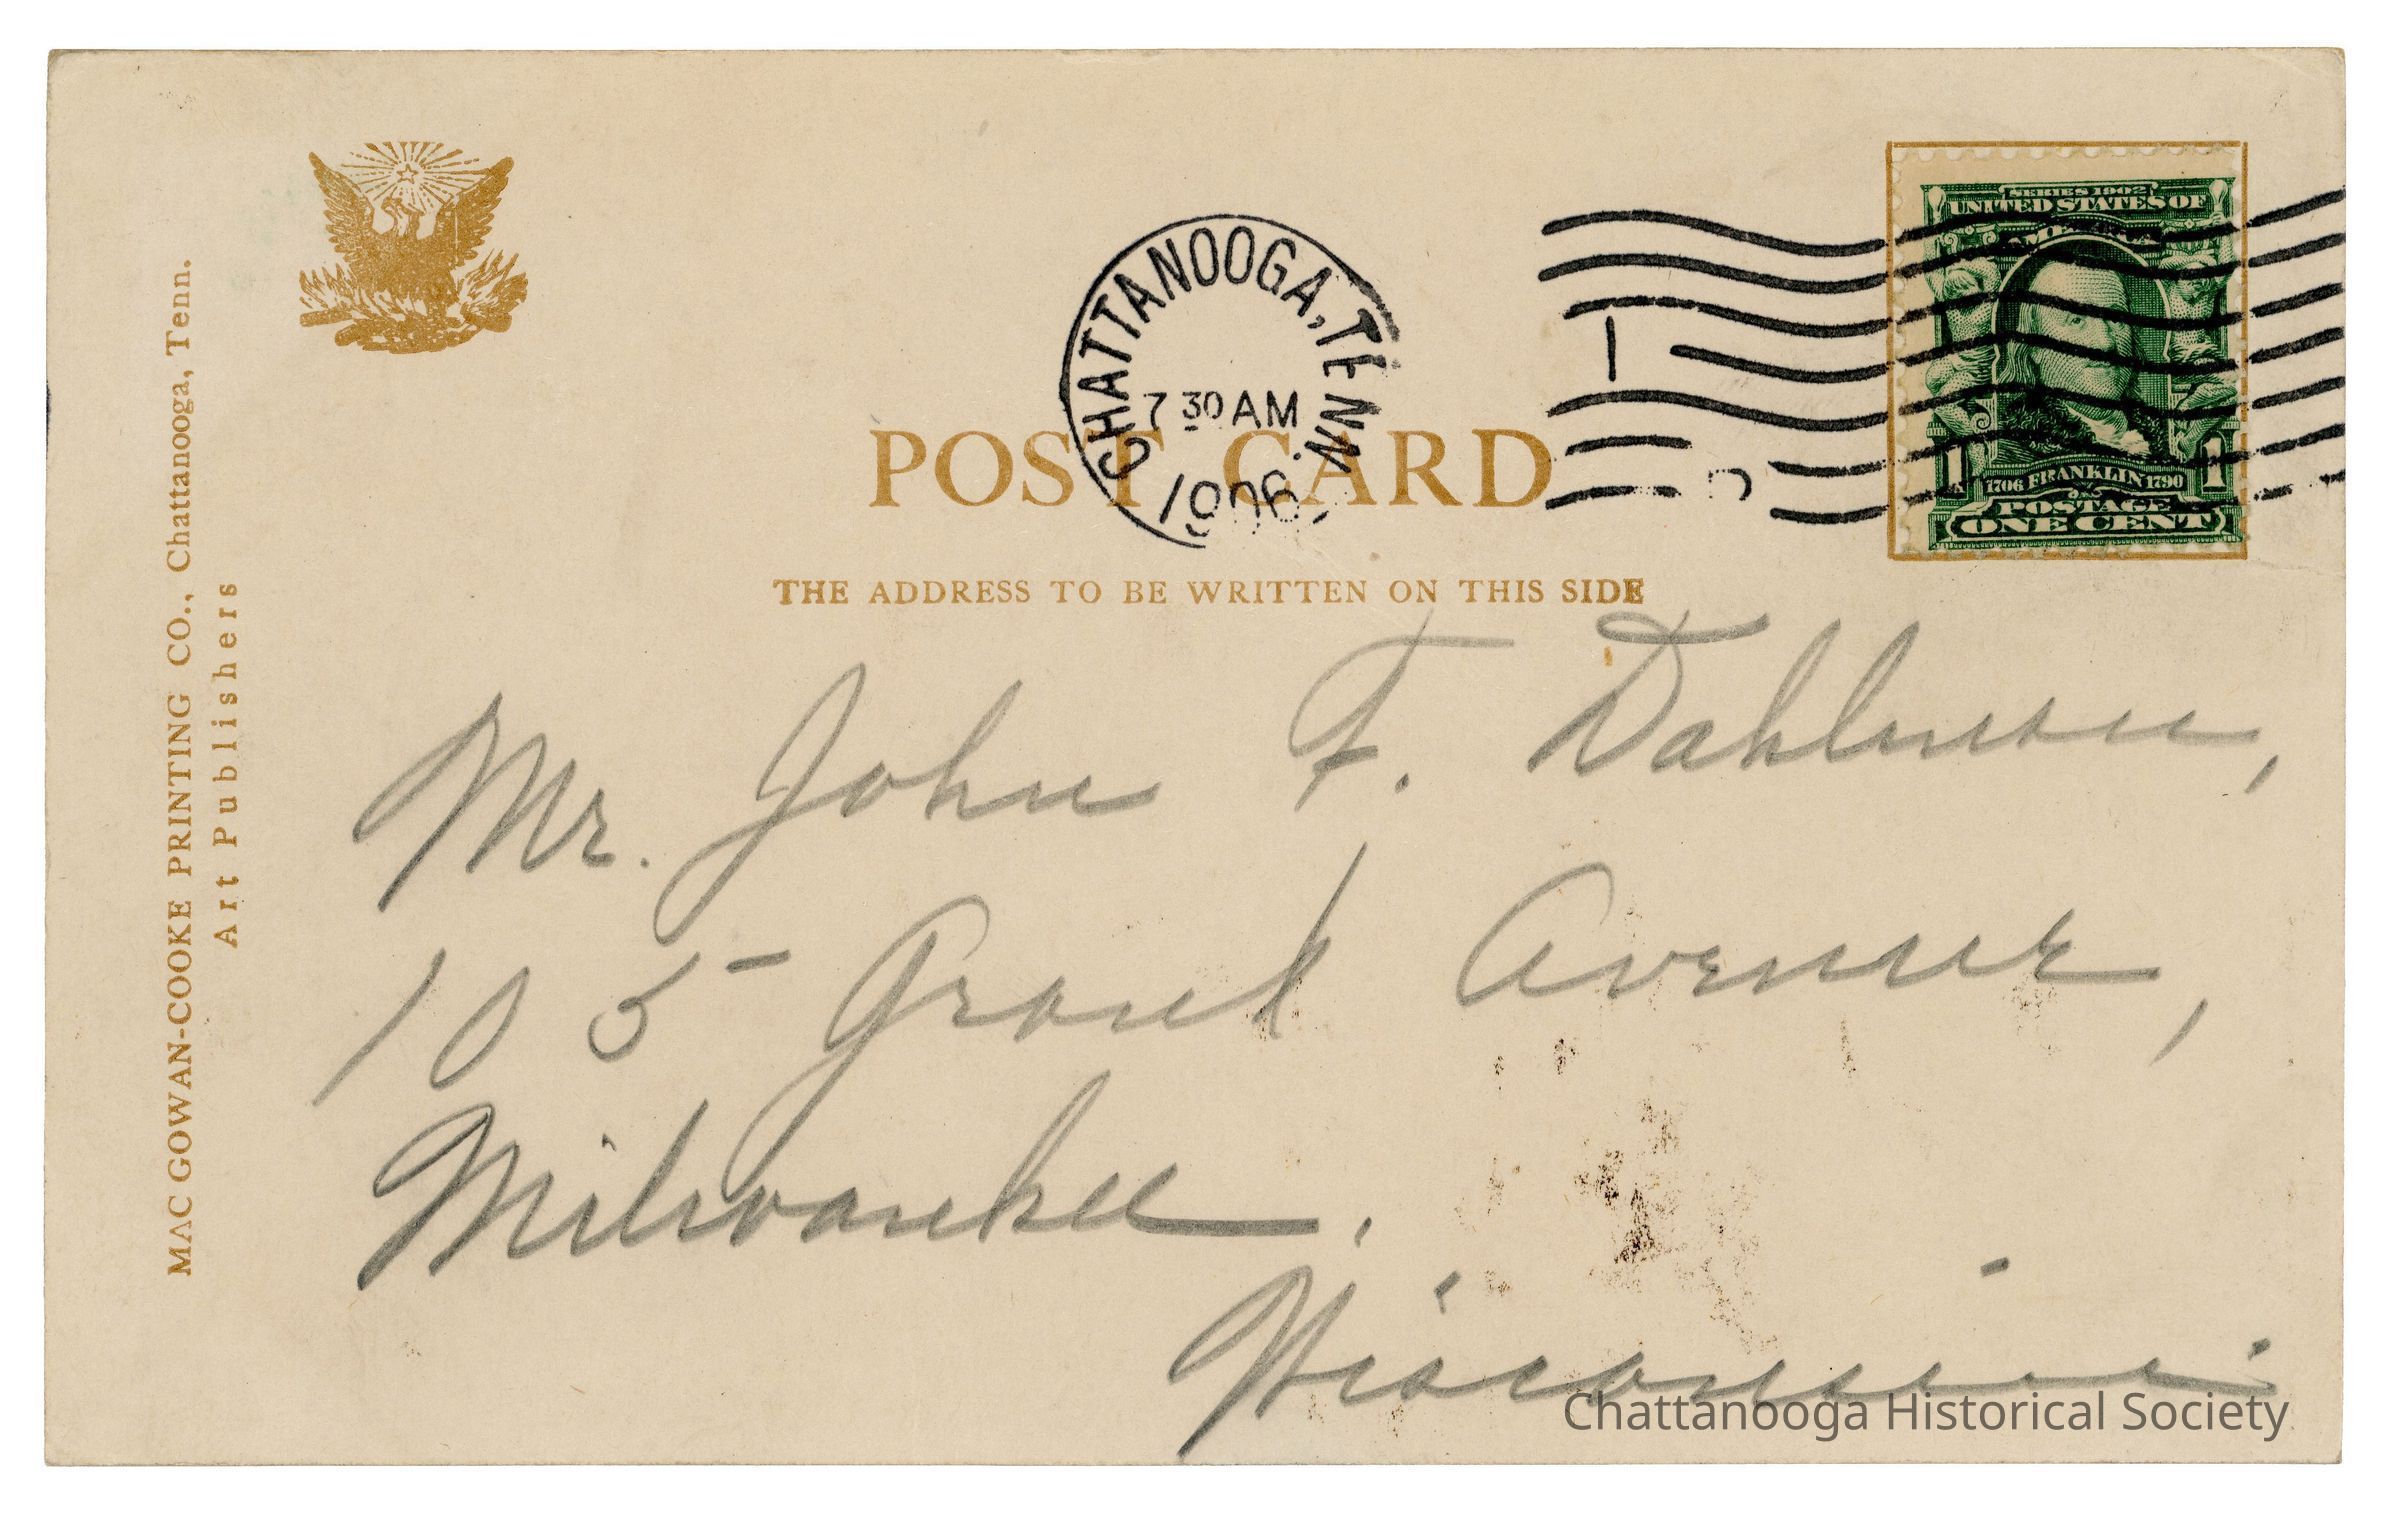 MAC GOWAN-COOKE PRINTING CO., Chattanooga, Tenn.
Art Publishers
CHATTANOOGA, TENN.
7 30 AM
1906
SERIES 1902
UNITED STATES OF
AMERICA
1 1706 FRANKLIN 1790 1
POSTAGE
ONE CENT
POST CARD
THE ADDRESS TO BE WRITTEN ON THIS SIDE
Mr. John F.
105 Grand Avenue,
Milwaukee.
Wisconsin.
Chattanooga Historical Society